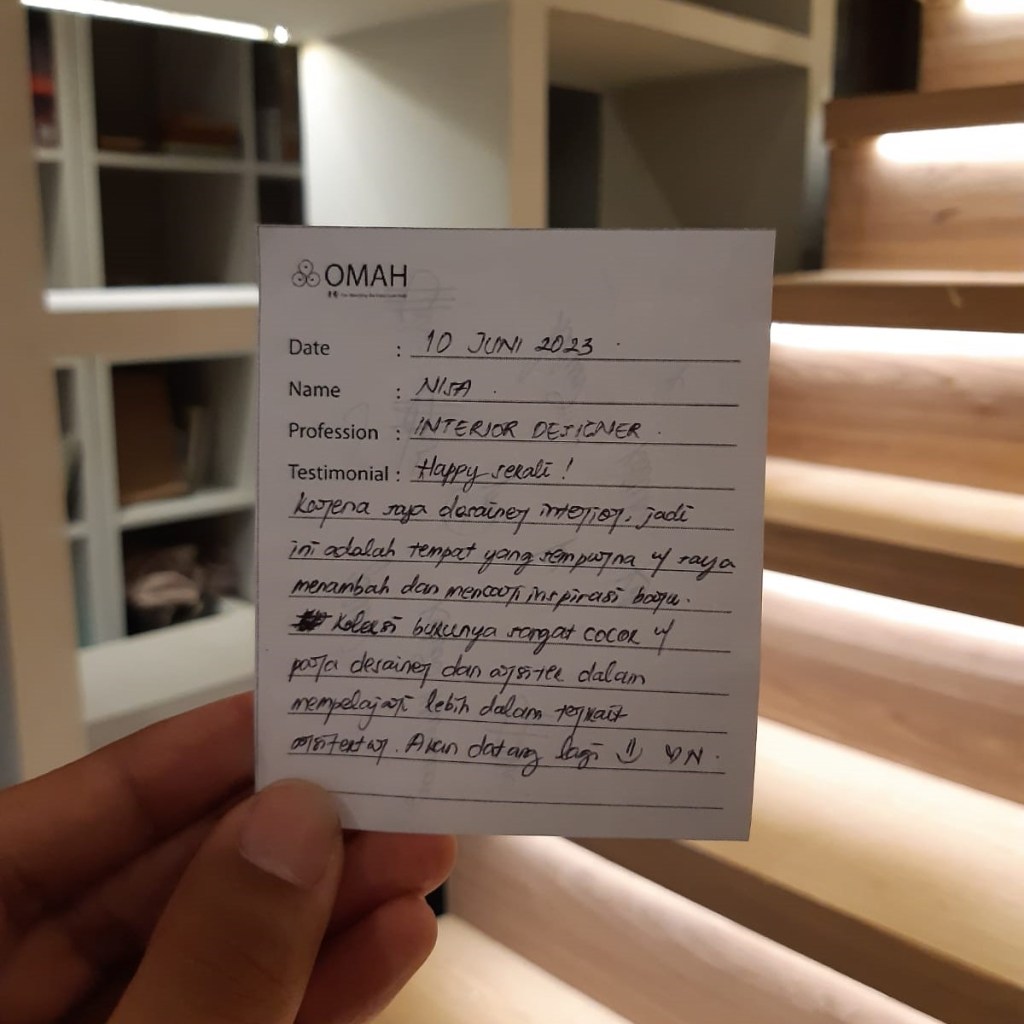 OMAH
Date : 10 JUNI 2023 .
Name : NISA .
Profession : INTERIOR DESIGNER .
Testimonial : Happy sekali !
Karena saya desainer interior, jadi
ini adalah tempat yang sempurna u/ saya
menambah dan mencari inspirasi baru.
Koleksi bukunya sangat cocok u/
para desainer dan arsitek dalam
mempelajari lebih dalam terkait
arsitektur. Akan datang lagi :) ♡N .